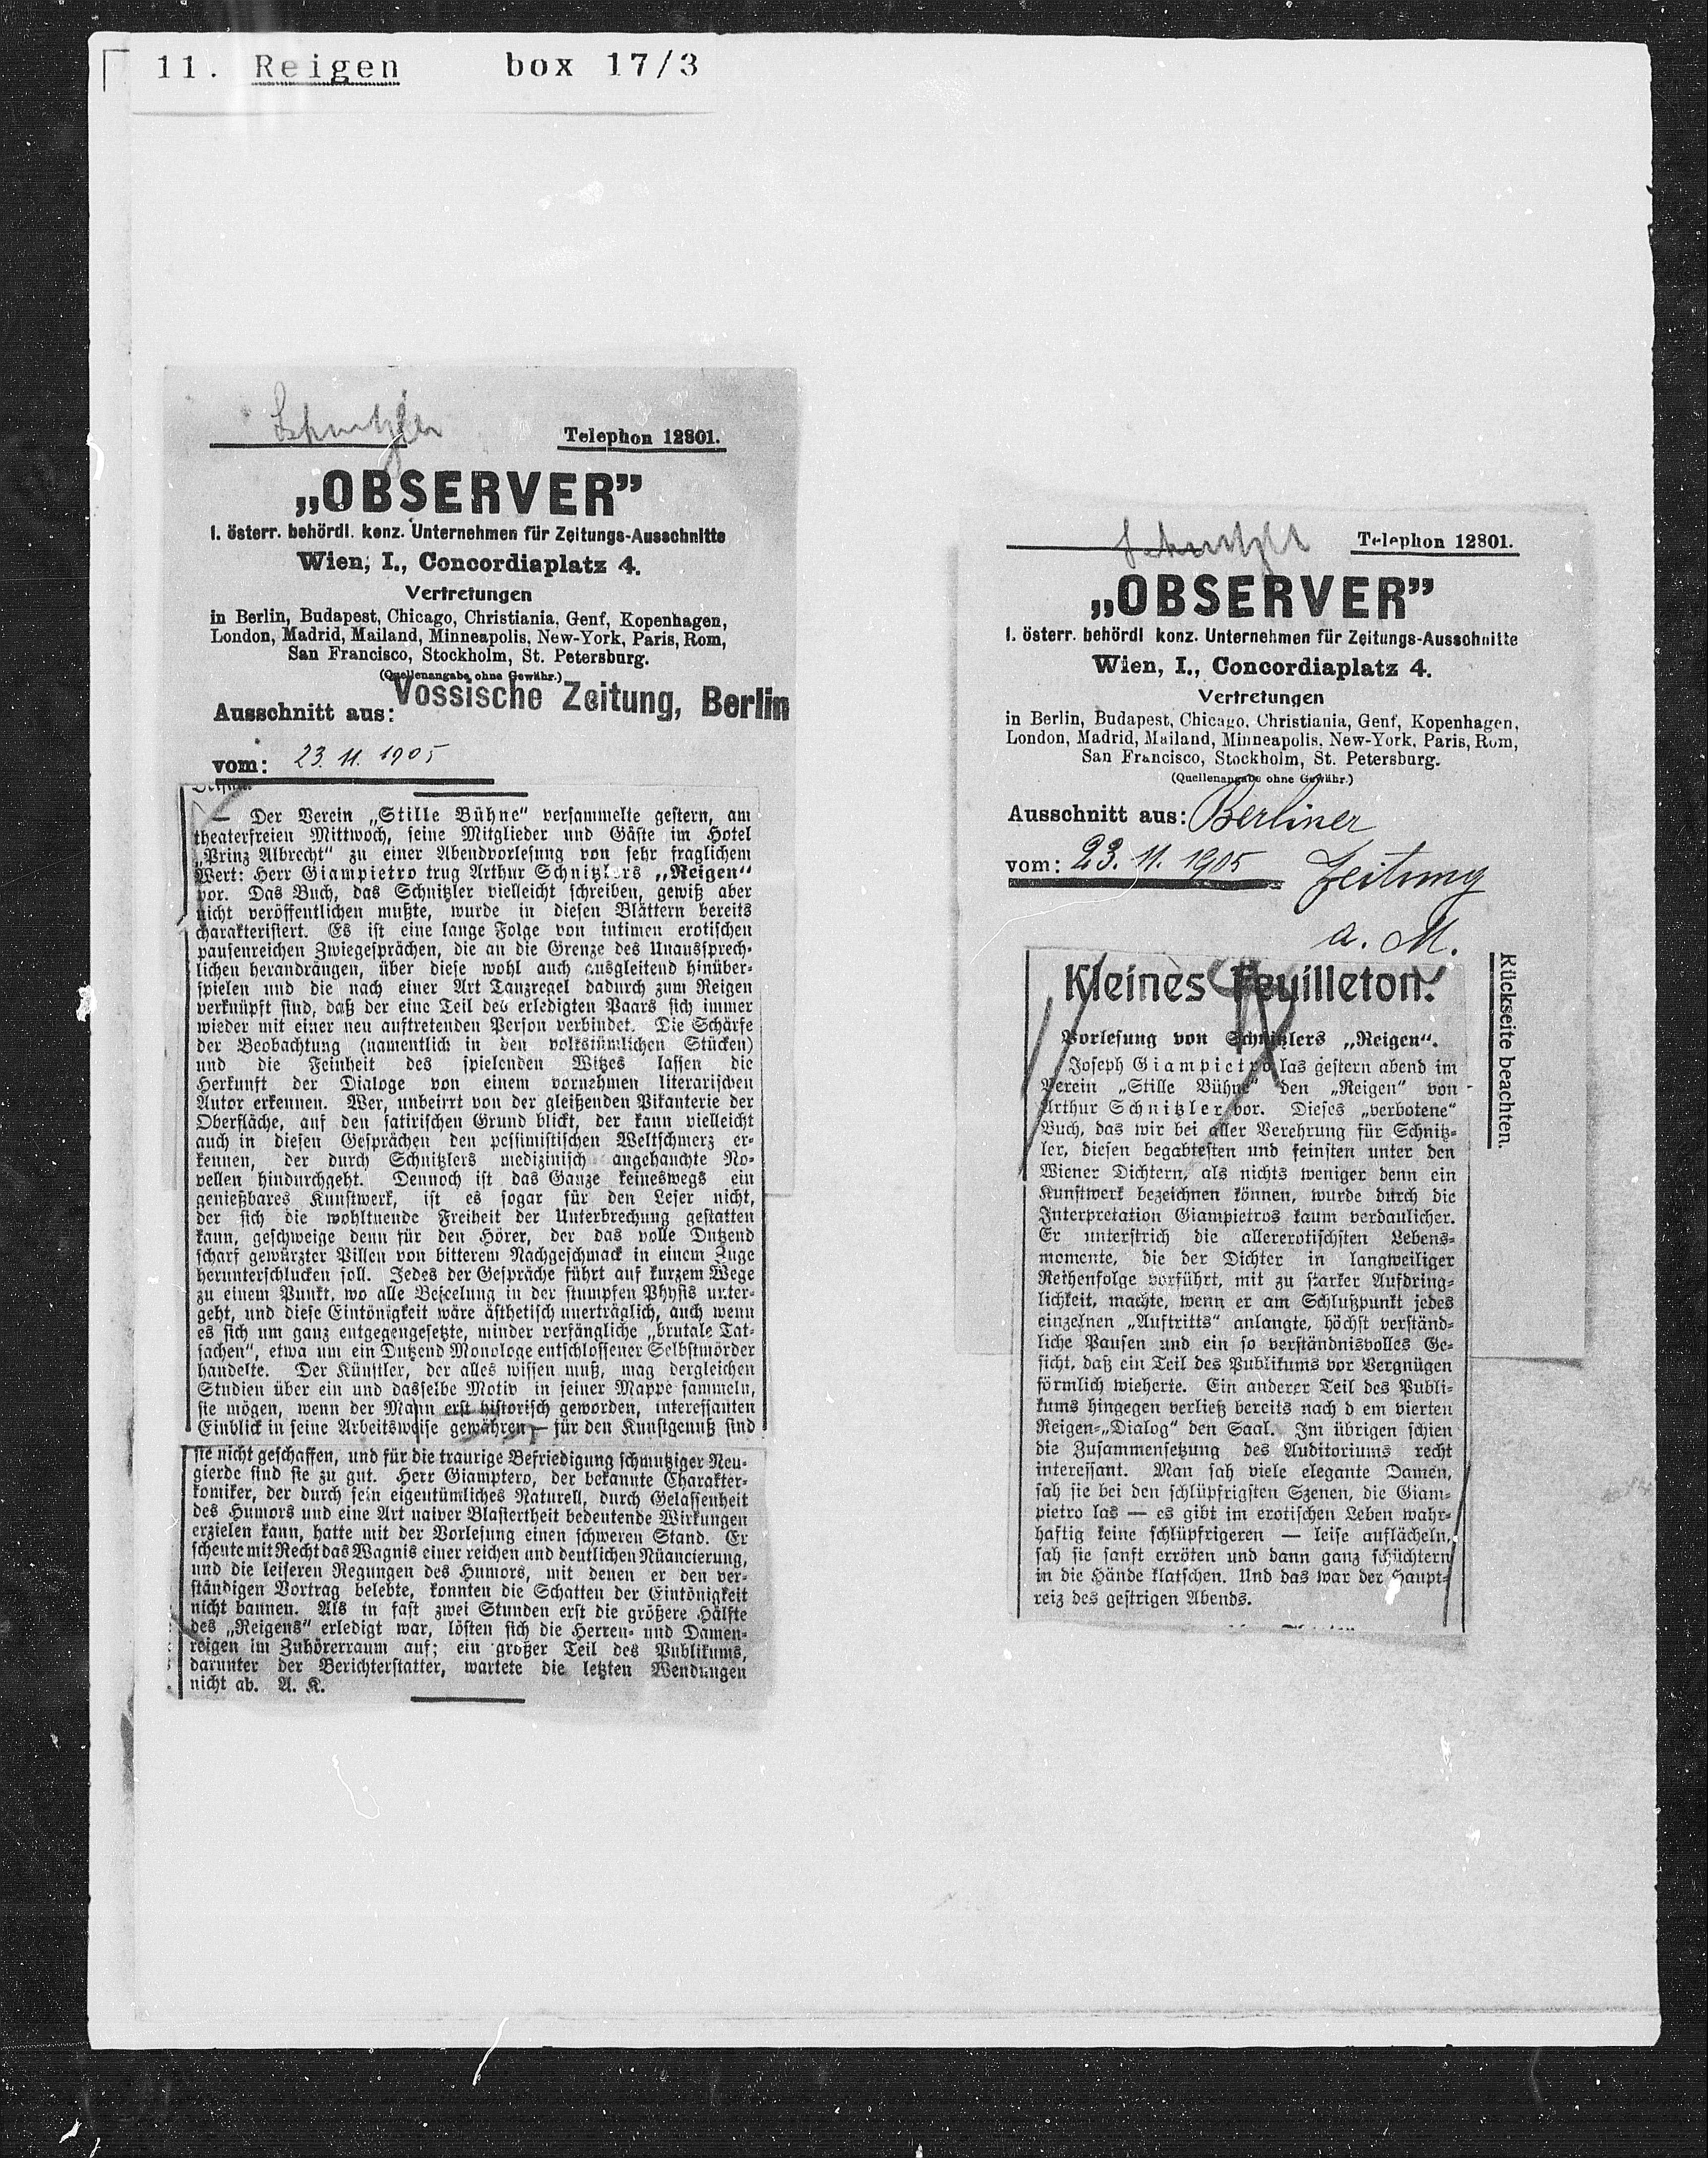 11. Reigen box 17/3
Schnitzler
Telephon 12801.
„OBSERVER”
I. österr. behördl. konz. Unternehmen für Zeitungs-Ausschnitte
Wien, I., Concordiaplatz 4.
Vertretungen
in Berlin, Budapest, Chicago, Christiania, Genf, Kopenhagen,
London, Madrid, Mailand, Minneapolis, New-York, Paris, Rom,
San Francisco, Stockholm, St. Petersburg.
(Quellenangabe ohne Gewähr.)
Ausschnitt aus: Vossische Zeitung, Berlin
vom: 23. 11. 1905
— Der Verein „Stille Bühne“ versammelte gestern, am
theaterfreien Mittwoch, seine Mitglieder und Gäste im Hotel
„Prinz Albrecht“ zu einer Abendvorlesung von sehr fraglichem
Wert: Herr Giampietro trug Arthur Schnitzlers „Reigen“
vor. Das Buch, das Schnitzler vielleicht schreiben, gewiß aber
nicht veröffentlichen mußte, wurde in diesen Blättern bereits
charakterisiert. Es ist eine lange Folge von intimen erotischen
pausenreichen Zwiegesprächen, die an die Grenze des Unaussprech-
lichen herandrängen, über diese wohl auch ausgleitend hinüber-
spielen und die nach einer Art Tanzregel dadurch zum Reigen
verknüpft sind, daß der eine Teil des erledigten Paars sich immer
wieder mit einer neu auftretenden Person verbindet. Die Schärfe
der Beobachtung (namentlich in den volkstümlichen Stücken)
und die Feinheit des spielenden Witzes lassen die
Herkunft der Dialoge von einem vornehmen literarischen
Autor erkennen. Wer, unbeirrt von der gleißenden Pikanterie der
Oberfläche, auf den satirischen Grund blickt, der kann vielleicht
auch in diesen Gesprächen den pessimistischen Weltschmerz er-
kennen, der durch Schnitzlers medizinisch angehauchte No-
vellen hindurchgeht. Dennoch ist das Ganze keineswegs ein
genießbares Kunstwerk, ist es sogar für den Leser nicht,
der sich die wohltuende Freiheit der Unterbrechung gestatten
kann, geschweige denn für den Hörer, der das volle Dutzend
scharf gewürzter Pillen von bitterem Nachgeschmack in einem Zuge
herunterschlucken soll. Jedes der Gespräche führt auf kurzem Wege
zu einem Punkt, wo alle Beseelung in der stumpfen Physis unter-
geht, und diese Eintönigkeit wäre ästhetisch unerträglich, auch wenn
es sich um ganz entgegengesetzte, minder verfängliche „brutale Tat-
sachen“, etwa um ein Dutzend Monologe entschlossener Selbstmörder
handelte. Der Künstler, der alles wissen muß, mag dergleichen
Studien über ein und dasselbe Motiv in seiner Mappe sammeln,
sie mögen, wenn der Mann erst historisch geworden, interessanten
Einblick in seine Arbeitsweise gewähren — für den Kunstgenuß sind
sie nicht geschaffen, und für die traurige Befriedigung schmutziger Neu-
gierde sind sie zu gut. Herr Giamptero, der bekannte Charakter-
komiker, der durch sein eigentümliches Naturell, durch Gelassenheit
des Humors und eine Art naiver Blasiertheit bedeutende Wirkungen
erzielen kann, hatte mit der Vorlesung einen schweren Stand. Er
scheute mit Recht das Wagnis einer reichen und deutlichen Nüancierung,
und die leiseren Regungen des Humors, mit denen er den ver-
ständigen Vortrag belebte, konnten die Schatten der Eintönigkeit
nicht bannen. Als in fast zwei Stunden erst die größere Hälfte
des „Reigens“ erledigt war, lösten sich die Herren- und Damen-
reigen im Zuhörerraum auf; ein großer Teil des Publikums,
darunter der Berichterstatter, wartete die letzten Wendungen
nicht ab. A. K.
Schnitzler
Telephon 12801.
„OBSERVER”
I. österr. behördl konz. Unternehmen für Zeitungs-Ausschnitte
Wien, I., Concordiaplatz 4.
Vertretungen
in Berlin, Budapest, Chicago, Christiania, Genf, Kopenhagen,
London, Madrid, Mailand, Minneapolis, New-York, Paris, Rom,
San Francisco, Stockholm, St. Petersburg.
(Quellenangabe ohne Gewähr.)
Ausschnitt aus: Berliner
vom: 23. 11. 1905 Zeitung
a. M.
Rückseite beachten.
Kleines Feuilleton.
Vorlesung von Schnitzlers „Reigen“.
Joseph Giampietro las gestern abend im
Verein „Stille Bühne“ den „Reigen“ von
Arthur Schnitzler vor. Dieses „verbotene“
Buch, das wir bei aller Verehrung für Schnitz-
ler, diesen begabtesten und feinsten unter den
Wiener Dichtern, als nichts weniger denn ein
Kunstwerk bezeichnen können, wurde durch die
Interpretation Giampietros kaum verdaulicher.
Er unterstrich die allererotischsten Lebens-
momente, die der Dichter in langweiliger
Reihenfolge vorführt, mit zu starker Aufdring-
lichkeit, machte, wenn er am Schlußpunkt jedes
einzelnen „Auftritts“ anlangte, höchst verständ-
liche Pausen und ein so verständnisvolles Ge-
sicht, daß ein Teil des Publikums vor Vergnügen
förmlich wieherte. Ein anderer Teil des Publi-
kums hingegen verließ bereits nach d em vierten
Reigen-„Dialog“ den Saal. Im übrigen schien
die Zusammensetzung des Auditoriums recht
interessant. Man sah viele elegante Damen,
sah sie bei den schlüpfrigsten Szenen, die Giam-
pietro las — es gibt im erotischen Leben wahr-
haftig keine schlüpfrigeren — leise auflächeln,
sah sie sanft erröten und dann ganz schüchtern
in die Hände klatschen. Und das war der Haupt-
reiz des gestrigen Abends.